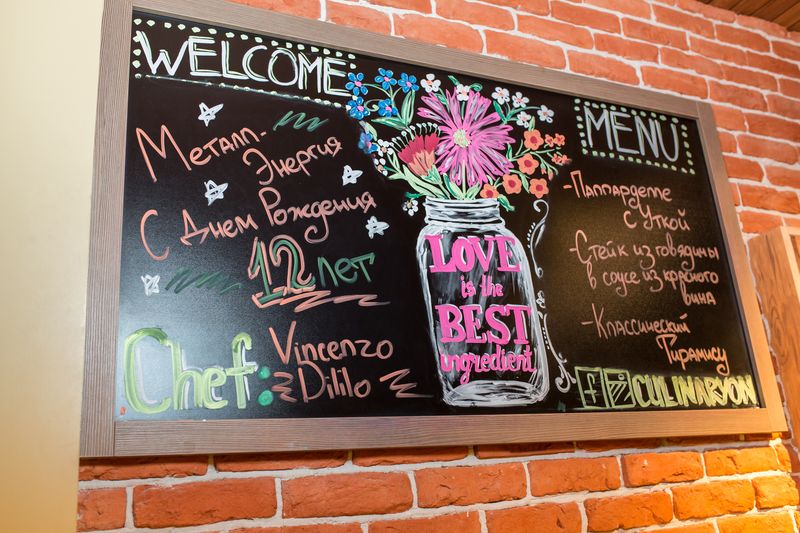 WELCOME
Металл-
Энергия
С Днем Рождения
12 лет
Chef:
Vincenzo
Dililo
LOVE
is the
BEST
ingredient
MENU
-Паппарделле
с Уткой
-Стейк из говядины
в соусе из красного
вина
-Классический
Тирамису
CULINARYON